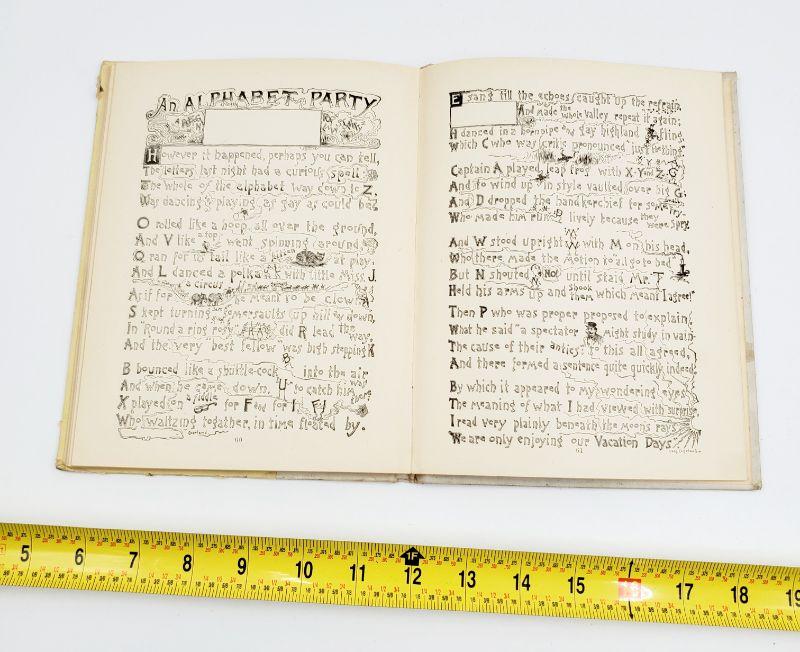 An ALPHABET PARTY
However it happened, perhaps you can tell,
The letters last night had a curious spell
The whole of the alphabet way down to Z.
Was dancing & playing, as gay as could be.
O rolled like a hoop all over the ground,
And V like a top went spinning around,
Q ran for its tail like a kitten at play.
And L danced a polka with little Miss J.
As if for a circus he meant to be clown
S kept turning somersaults up hill or down,
In "Round a ring rosy" did R lead the way.
And the very best fellow was high stepping K
B bounced like a shuttle-cock into the air
And when he came down, U to catch him was there
X played on a fiddle for F and for I
Who waltzing together, in time floated by.
60
E sang till the echoes caught up the refrain,
And made the whole valley repeat it again;
H danced in a hornpipe and gay highland fling,
Which C who was critic pronounced just the thing.
Captain A played leap frog with X-Y and Z
And to wind up in style vaulted over big G.
And D dropped the handkerchief for some fry.
Who made him run lively because they were spry.
And W stood upright with M on his head,
Who there made the motion to all go to bed
But N shouted No! until staid Mr. T
Held his arms up and shook them which meant I agree!
Then P who was proper proposed to explain,
What he said "a spectator might study in vain
The cause of their antics: to this all agreed,
And there formed a sentence quite quickly indeed.
By which it appeared to my wondering eyes
The meaning of what I had viewed with surprise.
I read very plainly beneath the moon's rays
We are only enjoying our Vacation Days
61
5 6 7 8 9 10 11 1F 12 13 14 15 16 17 18 19